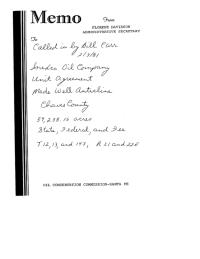 Memo
From
FLORENE DAVIDSON
ADMINISTRATIVE SECRETARY
To
Called in by Bill Carr
2/3/81
Inexco Oil Company
Unit Agreement
Made Well Anticline
Chaves County
59,298.16 acres
State, Federal, and Fee
T 12, 13, and 14S, R 21 and 22E
OIL CONSERVATION COMMISSION-SANTA FE